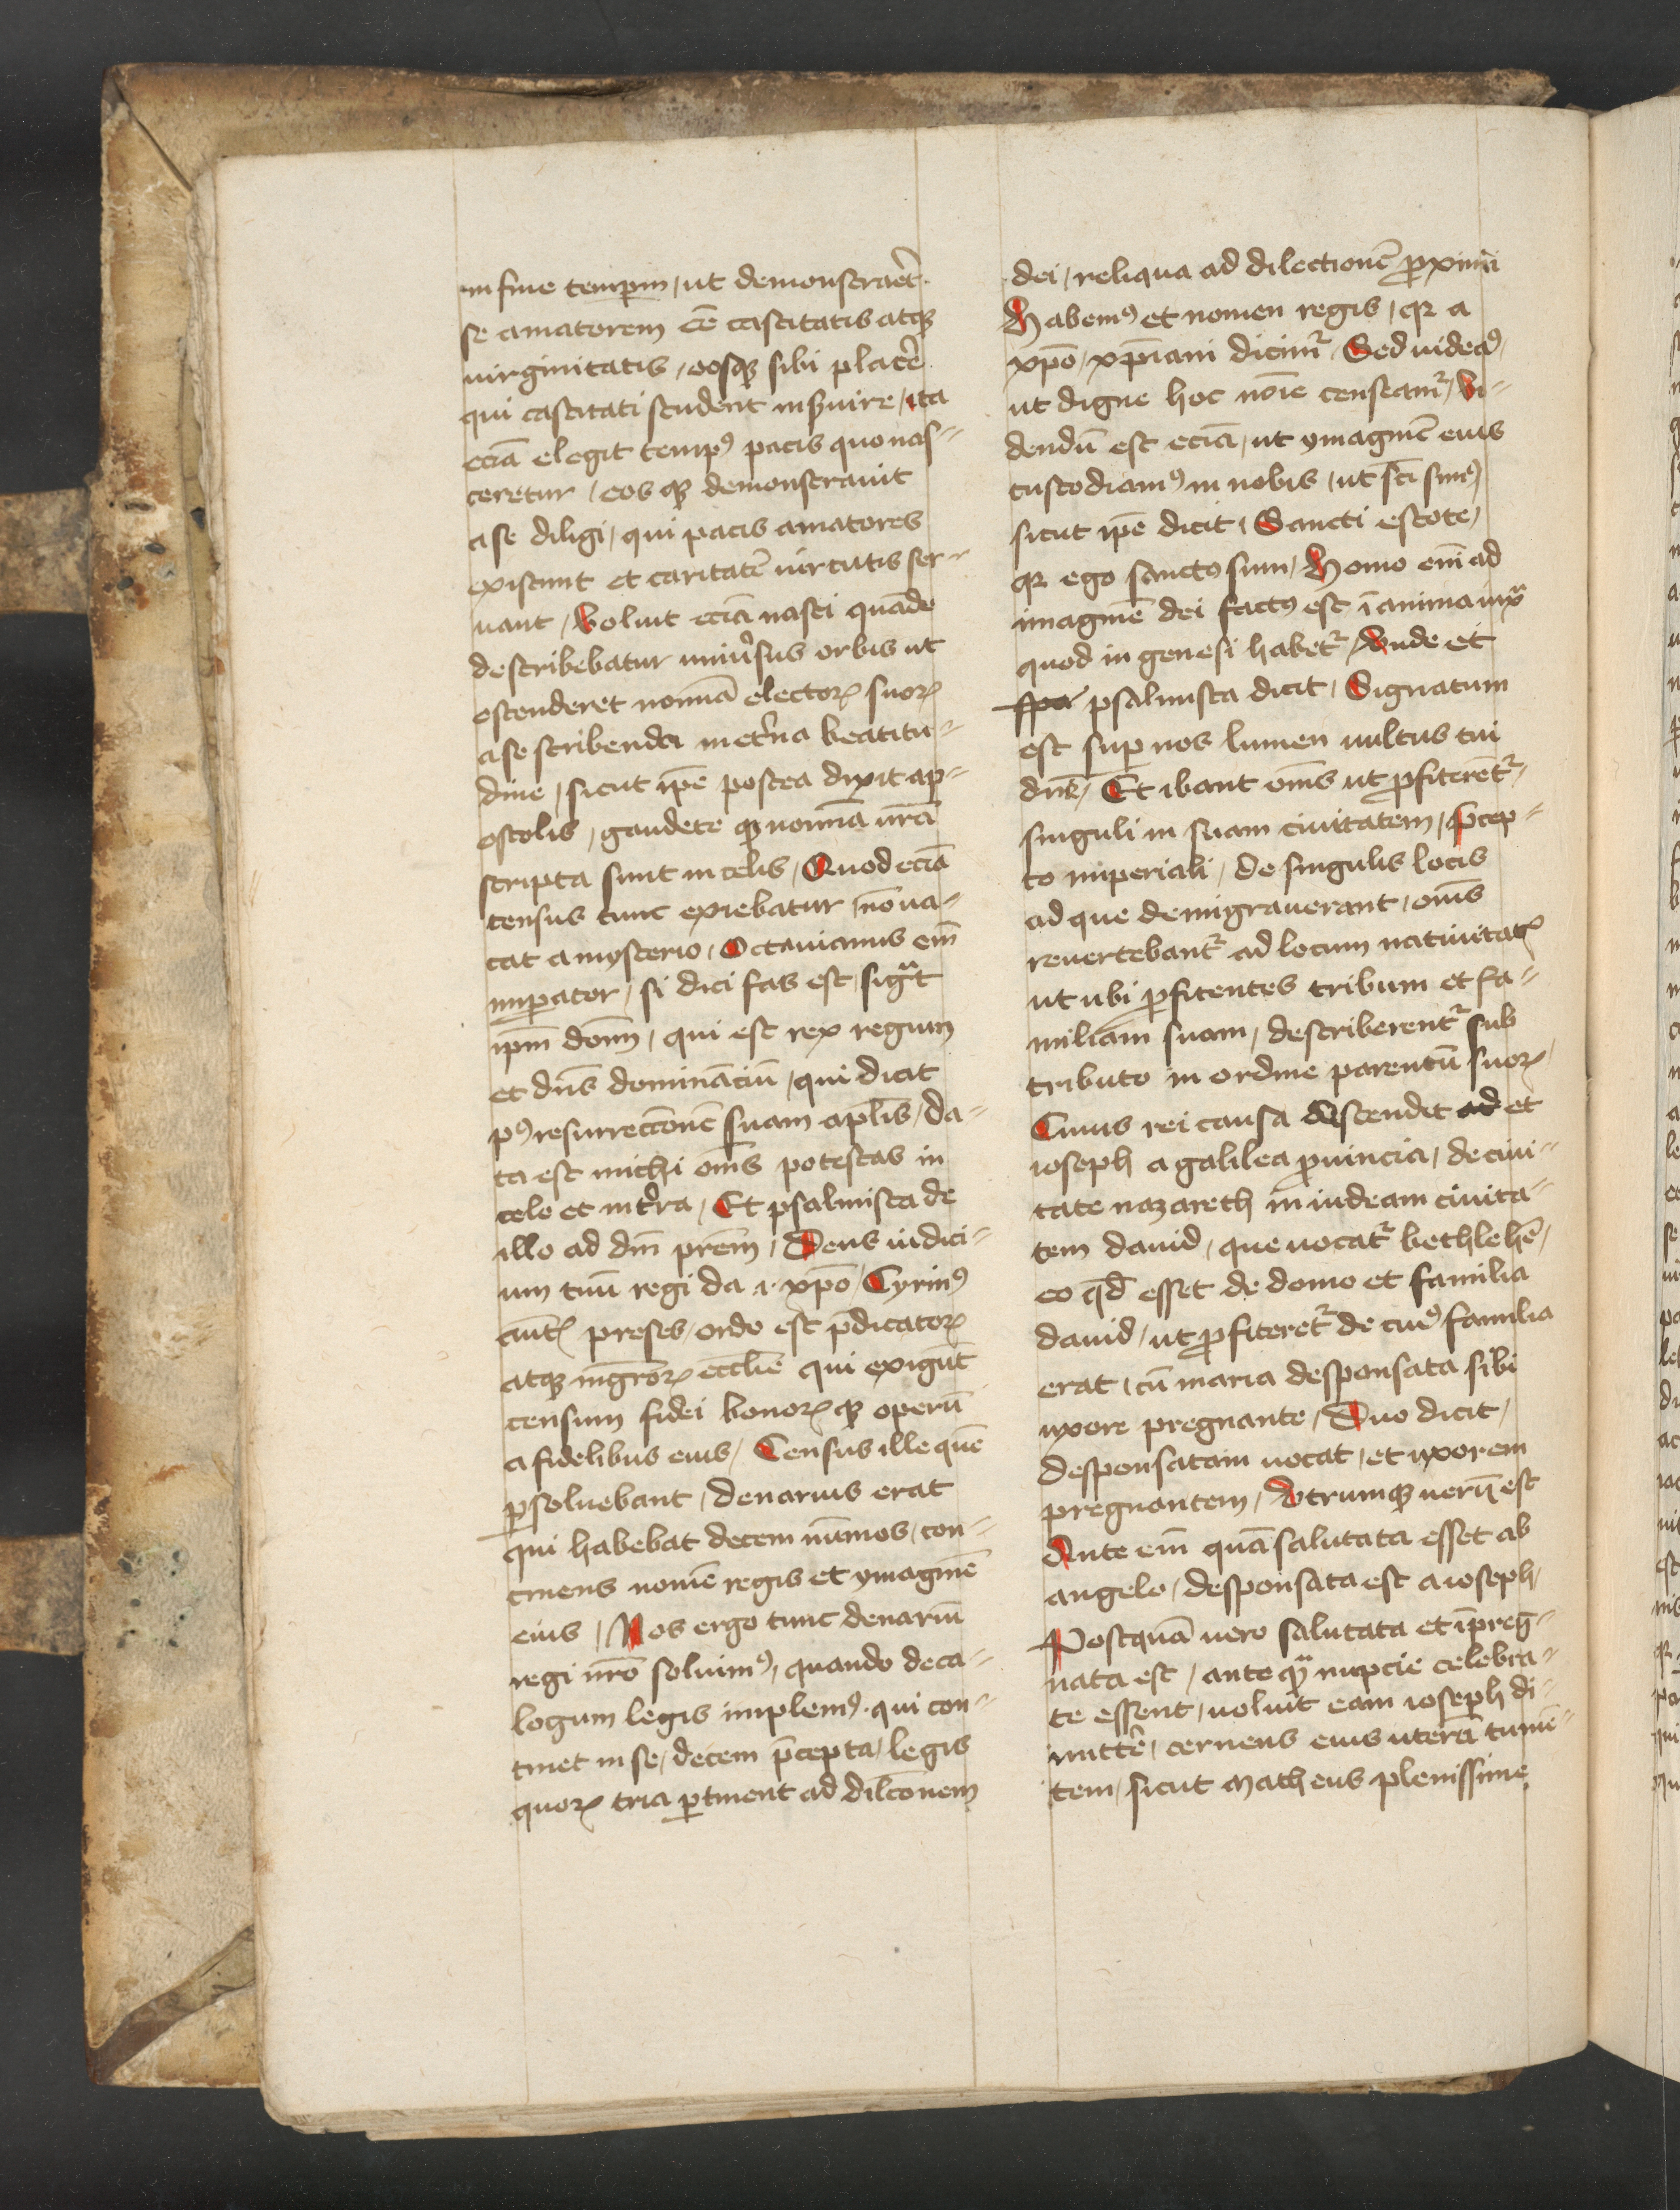 in fine temꝑm / ut demonstraēt
se amatorem eē castitatis atqꝫ
uirginitatis / eosqꝫ sibi placē
qui castitati student inẜuire / ita
eciā elegit tempꝰ pacis quo nas⸗
ceretur / eos qꝫ demonstrauit
a se diligi / qui pacis amatores
existunt et caritatē uirtutis ser⸗
uant / Voluit eciā nasci quādo
describebatur uniuˀsus orbis ut
ostenderet nomīa electoꝝ suoꝝ
a se scribenda in etˀna beatitu⸗
dine / sicut ip̄e postea dixit ap⸗
ostolis / gaudete qꝫ nomīa ur̄a
scripta sunt in celis / Quod eciā
census tunc exiebatur / nō ua⸗
cat a mysterio / Octauianus em̄
imꝑator / si dici fas est sigᵃt
ip̄m dom̄ / qui est rex regum
et dn̄s dominaciū / qui dicit
pꝰ resurrectōnē suam apl̄is / da⸗
ta est michi om̄s potestas in
celo et in tˀra / Et psalmista de
illo ad dm̄ prēm / Deus iudici⸗
um tuū regi da .i. xp̄o / Cyrinꝰ
ciuitꝭ preses / ordo est p̄dicatoꝝ
atqꝫ mgr̄oꝝ eccl̄ie qui exigūt
censum fidei bonoꝝ qꝫ operū
a fidelibus eius / Census ille quē
ꝑsoluebant / denarius erat
qui habebat decem nūmos / con⸗
tinens nomē regis et ymaginē
eius / Nos ergo tunc denariū
regi nr̄o soluimꝰ / quando deca⸗
logum legis implemꝰ . qui con⸗
tinet in se / decem p̄cepta / legis
quoꝝ tria ꝑtinent ad dil̄conem
dei / reliqua ad dilectionē ꝓximi
Habemꝰ et nomen regis / qꝛ a
xp̄o / xp̄iani dicimˀ / Sed uideaꝰ /
ut digne hoc noīe censeamˀ / Vi⸗
dendū est eciā / ut ymaginē eius
custodiamꝰ in nobis / ut sc̄i simꝰ /
sicut ip̄e dicit / Sancti estote /
qꝛ ego sanctꝰ sum / Homo em̄ ad
imaginē dei factꝰ est ī anima iuxᵃ
quod in genesi habetˀ / Vnde et
psalmista dicit / Signatum
est suꝑ nos lumen uultus tui
dn̄e / Et ibant om̄s ut ꝓfiterētˀ /
singuli in suam ciuitatem / P̄cep⸗
to imperiali / de singulis locis
ad que demigrauerant / om̄s
reuertebantˀ ad locum natiuitatꝭ
ut ubi ꝓfitentes tribum et fa⸗
miliam suam / describerentˀ sub
tributo in ordine parentū suoꝝ /
Cuius rei causa descendit ad et
ioseph a galilea ꝓuincia / de ciui⸗
tate nazareth in iudeam ciuita⸗
tem dauid / que uocatˀ bethlehē /
eo qd̄ esset de domo et familia
dauid / ut ꝓfiteretˀ de cuiꝰ familia
erat / cū maria desponsata sibi
uxore pregnante / Duo dicit /
desponsatam uocat / et uxorem
pregnantem / Vtrumqꝫ uerū est
Ante em̄ quā salutata esset ab
angelo / desponsata est a ioseph /
Postquā uero salutata et īpreg⸗
nata est / ante qᵃ nupcie celebra⸗
te essent / uoluit eam ioseph di⸗
mittē / cernens eius uterū tumē⸗
tem / sicut Matheus plenissime